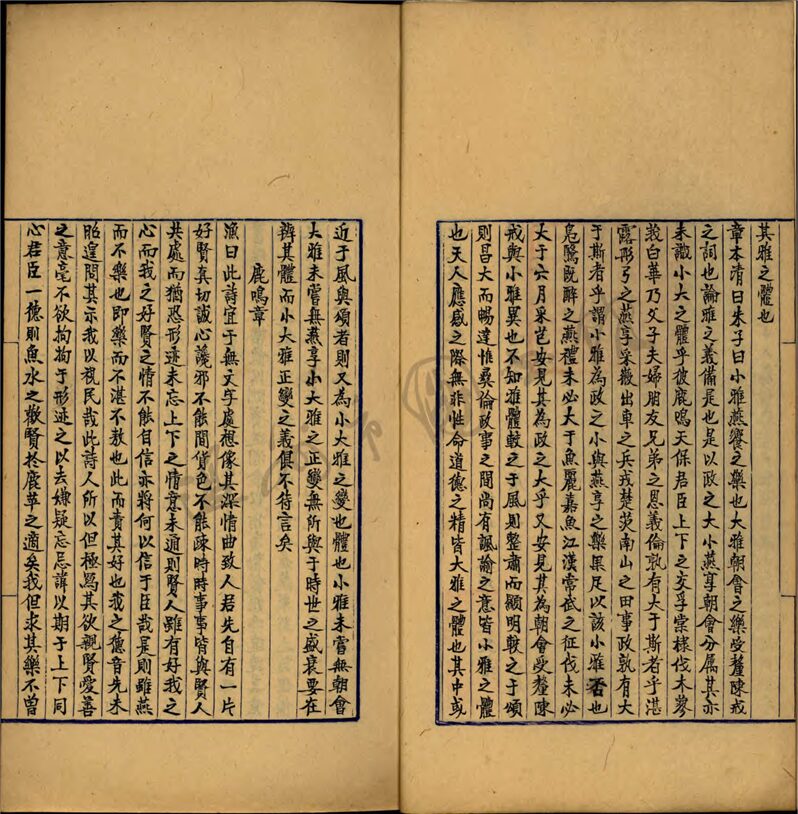 其雅之體也
章本清曰朱子曰小雅燕饗之樂也大雅朝會之樂受釐陳戒
之詞也論雅之義備是也是以政之大小燕享朝會分屬其亦
未識小大之體乎彼鹿鳴天保君臣上下之交孚棠棣伐木蓼
莪白華乃父子夫婦朋友兄弟之恩義倫孰有大于斯者乎湛
露彤弓之燕享采薇出車之兵戎楚茨南山之田事政孰有大
于斯者乎謂小雅為政之小與燕享之樂果足以該小雅否也
鳧鷖既醉之燕禮未必大于魚麗嘉魚江漢常武之征伐未必
大于六月采芑安見其為政之大乎又安見其為朝會受釐陳
戒與小雅異也不知雅體較之于風則整肅而顯明較之于頌
則昌大而暢達惟彞倫政事之間尚有諷諭之意皆小雅之體
也天人應感之際無非性命道德之精皆大雅之體也其中或
近于風與頌者則又為小大雅之變也體也小雅未嘗無朝會
大雅未嘗無燕享小大雅之正變無所與于時世之盛衰要在
辨其體而小大雅正變之義俱不待言矣
鹿鳴章
漁曰此詩宜于無文字處想像其深情曲致人君先自有一片
好賢真切誠心讒邪不能間貨色不能疎時時事事皆與賢人
共處而猶恐形迹未忘上下之情意未通則賢人雖有好我之
心而我之好賢之情不能自信亦將何以信于臣哉是則雖燕
而不樂也即樂而不湛不敖也此而責其好也我之德音先未
昭遑問其示我以視民哉此詩人所以但極寫其欲親賢愛善
之意毫不欲拘拘于形迹之以去嫌疑忘忌諱以期于上下同
心君臣一德則魚水之歡賢於鹿苹之適矣我但求其樂不曾